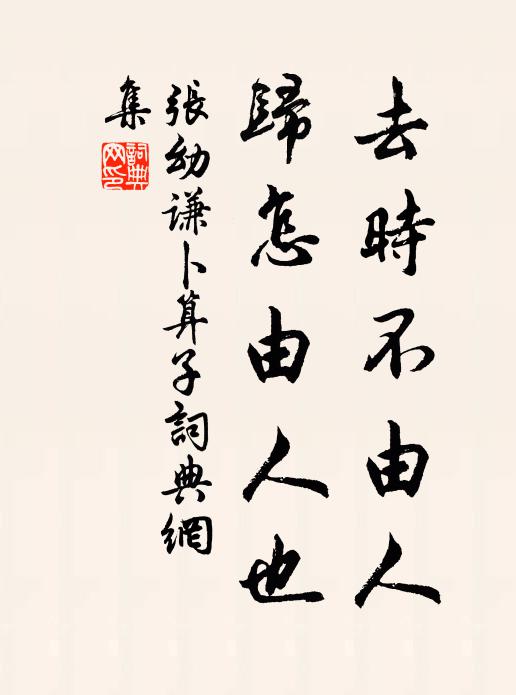 去時不由人
歸怎由人也
張幼謙卜算子詞典網
集
詞典網印